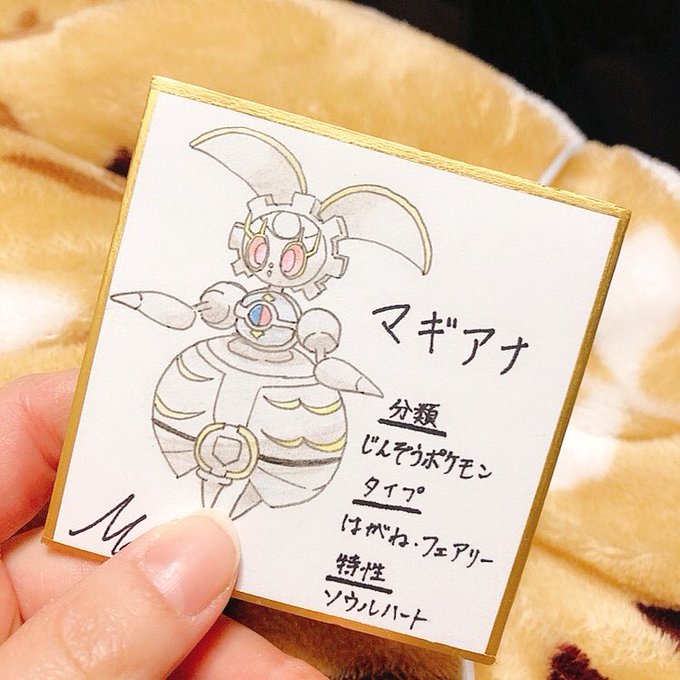 マギアナ
分類
じんぞうポケモン
タイプ
はがね・フェアリー
特性
ソウルハート